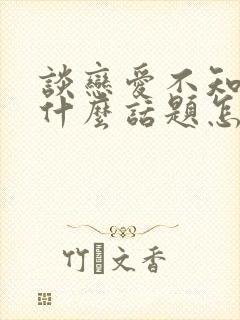 談戀愛不知
什麼話題怎
竹文香